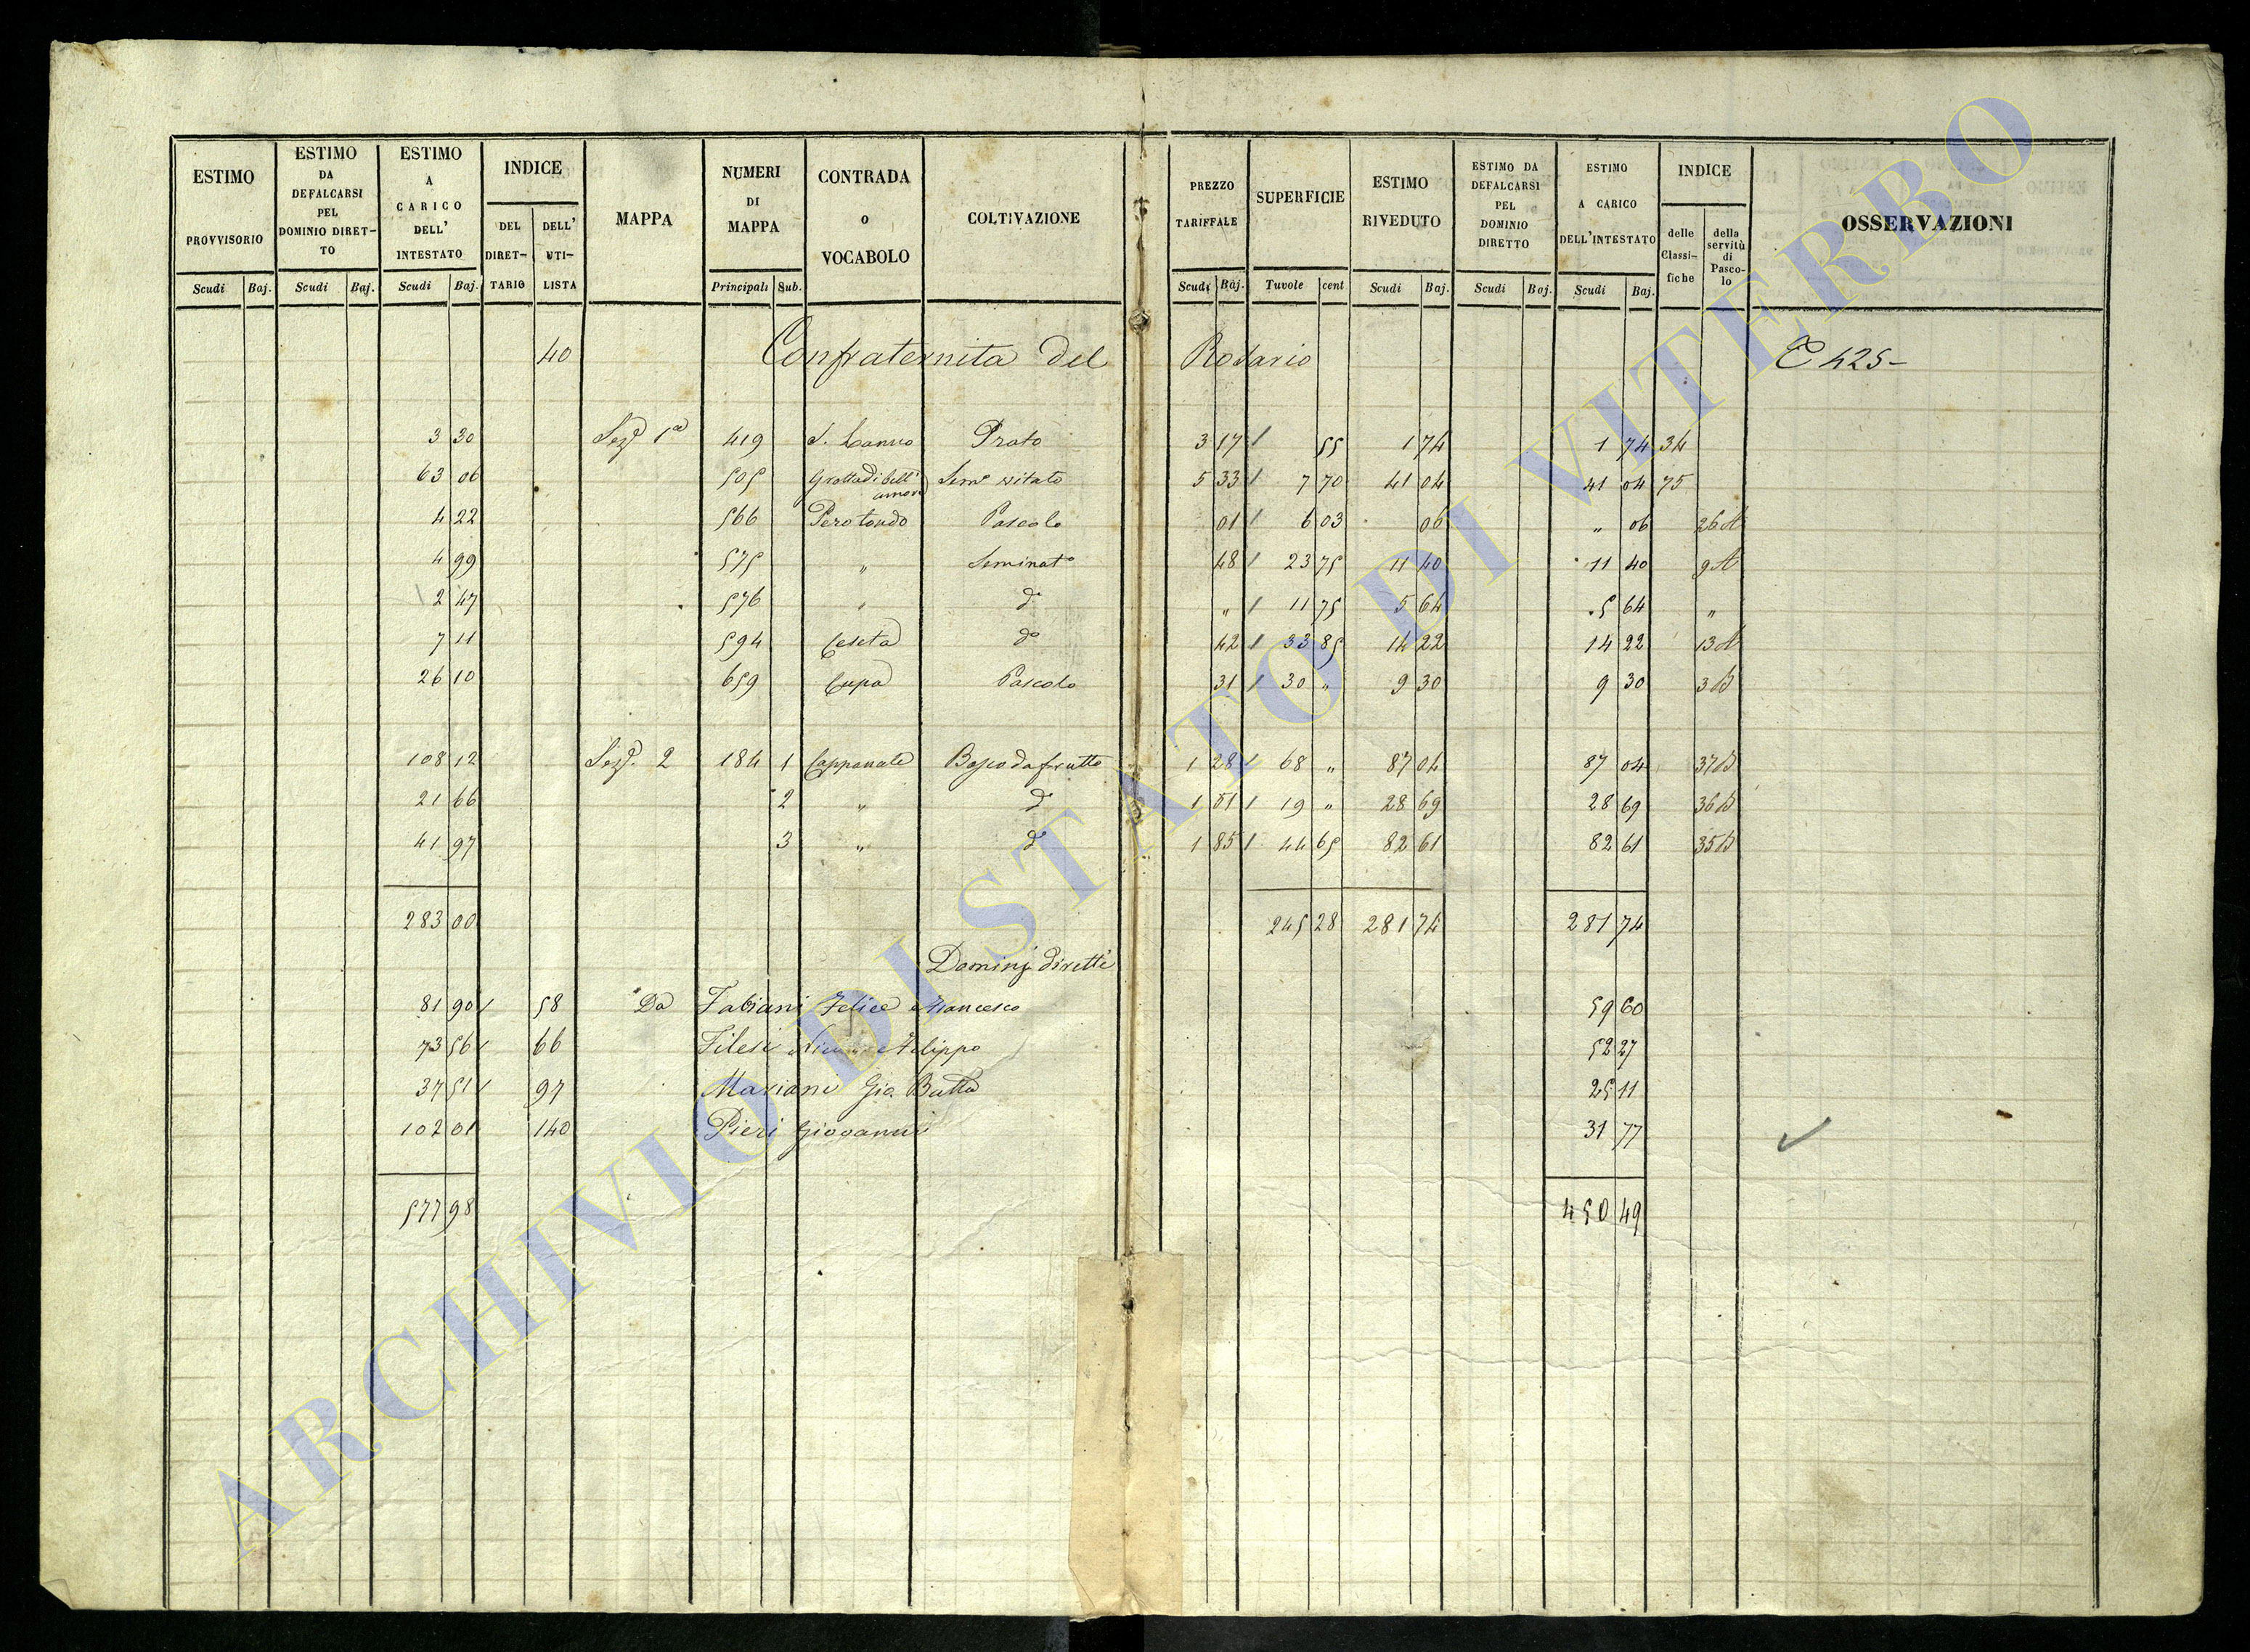 ESTIMO PROVVISORIO Scudi Baj.
ESTIMO DA DEFALCARSI PEL DOMINIO DIRET-TO Scudi Baj.
ESTIMO A CARICO DELL' INTESTATO Scudi Baj.
INDICE DEL DIRET-TARIO DELL' UTI-LISTA
MAPPA
NUMERI DI MAPPA Principali Sub.
CONTRADA o VOCABOLO
COLTIVAZIONE
PREZZO TARIFFALE Scudi Baj.
SUPERFICIE Tavole cent
ESTIMO RIVEDUTO Scudi Baj.
ESTIMO DA DEFALCARSI PEL DOMINIO DIRETTO Scudi Baj.
ESTIMO A CARICO DELL'INTESTATO Scudi Baj.
INDICE delle Classi-fiche della servitù di Pasco-lo
OSSERVAZIONI
40 Confraternita del Rosario C 425-
3 30 Sezε 1a 419 Prato 3 17 / 55 1 74 1 74 34
63 06 505 Grotta di bell' amore Semo vitato 5 33 / 7 70 41 04 41 04 75
4 22 566 Perotondo Pascolo 01 / 6 03 06 " 06 26 A
4 99 575 " Seminato 48 / 23 75 11 40 11 40 9 A
2 47 576 " do " / 11 75 5 64 5 64 "
7 11 594 Ceseta do 42 / 33 85 14 22 14 22 13 A
26 10 659 Cupa Pascolo 31 / 30 " 9 30 9 30 3 B
108 12 Sez. 2 184 1 Cappanale Bosco da frutto 1 28 / 68 " 87 04 87 04 37 B
21 66 2 " do 1 51 / 19 " 28 69 28 69 36 B
41 97 3 " do 1 85 / 44 65 82 61 82 61 35 B
283 00 245 28 281 74 281 74
Dominj diretti
81 90 / 58 Da Fabiani Felice e Francesco 59 60
73 56 / 66 Filesi e Filippo 52 27
37 51 / 97 Mariani Gio. Batta 25 11
102 01 140 Pieri Giovanni 31 77
577 98 450 49
ARCHIVIO DI STATO DI VITERBO